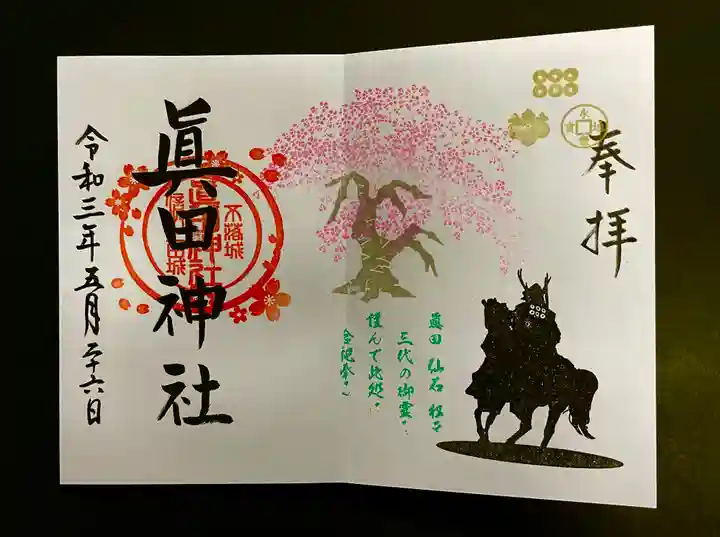 奉拝
永
眞田 仙石 松平
三代の御霊に
謹んで此処に
合祀奉る
眞田神社
不落城
令和三年五月二十六日